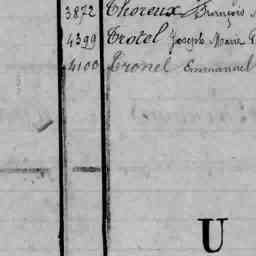 3872 Thoreux François
4399 Trotel Joseph Marie
4100 Tronel Emmanuel
U